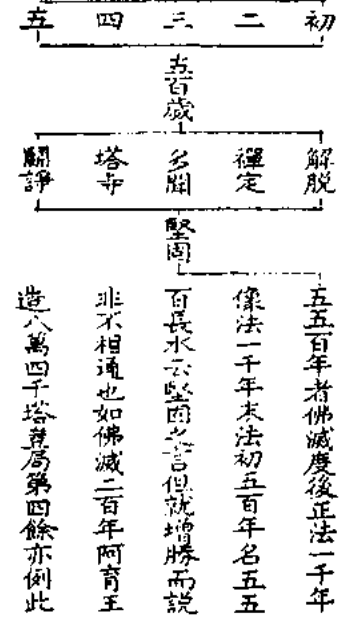 初 二 三 四 五
五百歲
解脱 禪定 多聞 塔寺 鬭諍
堅固
五五百年者佛滅度後正法一千年
像法一千年末法初五百年名五五
百長水云堅固之言但就增勝而説
非不相通也如佛滅二百年阿育王
造八萬四千塔豈局第四餘亦例此